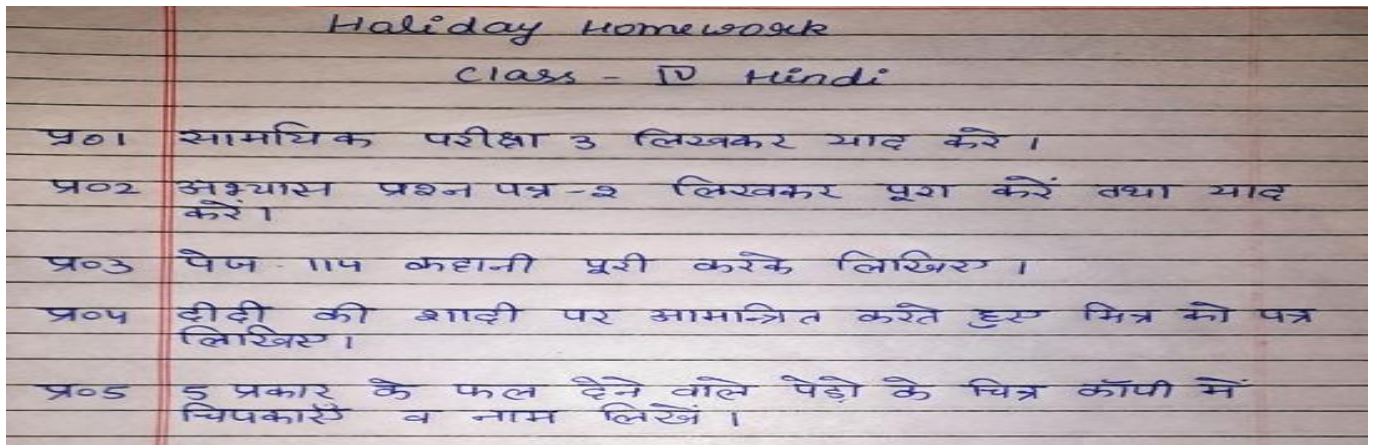 Haliday Homework
Class - IV Hindi
प्र०1 सामयिक परीक्षा 3 लिखकर याद करे ।
प्र०2 अभ्यास प्रश्न पत्र -2 लिखकर पूरा करें तथा याद
करें ।
प्र०3 पेज 114 कहानी पूरी करके लिखिए ।
प्र०4 दीदी की शादी पर आमान्त्रित करते हुए मित्र को पत्र
लिखिए ।
प्र०5 5 प्रकार के फल देने वाले पेड़ो के चित्र कॉपी में
चिपकाएँ व नाम लिखें ।